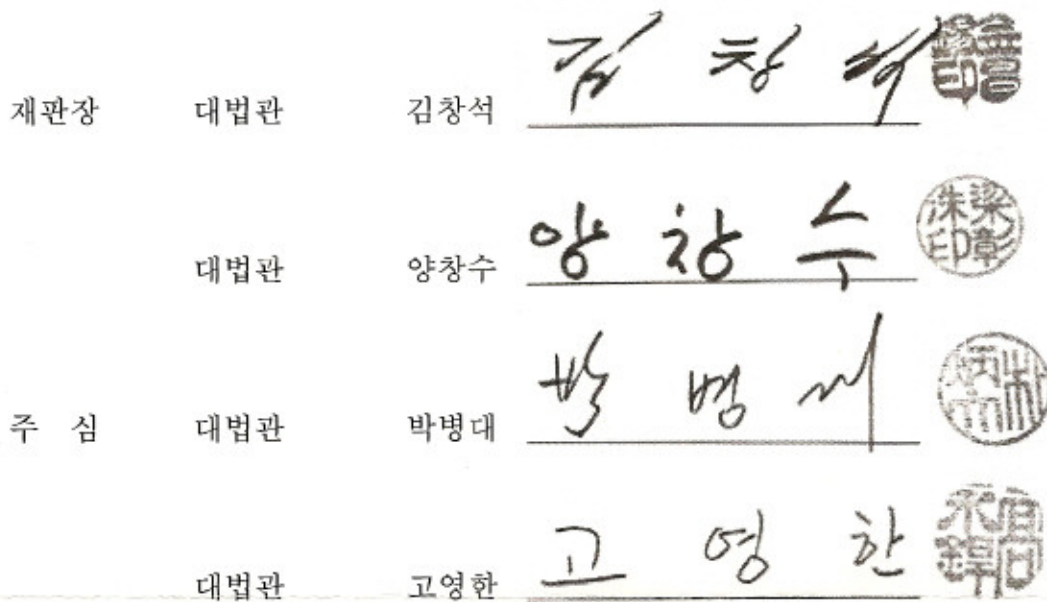 재판장 대법관 김창석 김 창 석
대법관 양창수 양 창 수 梁彰洙印
주 심 대법관 박병대 박 병 대 朴炳大
대법관 고영한 고 영 한 高永銲